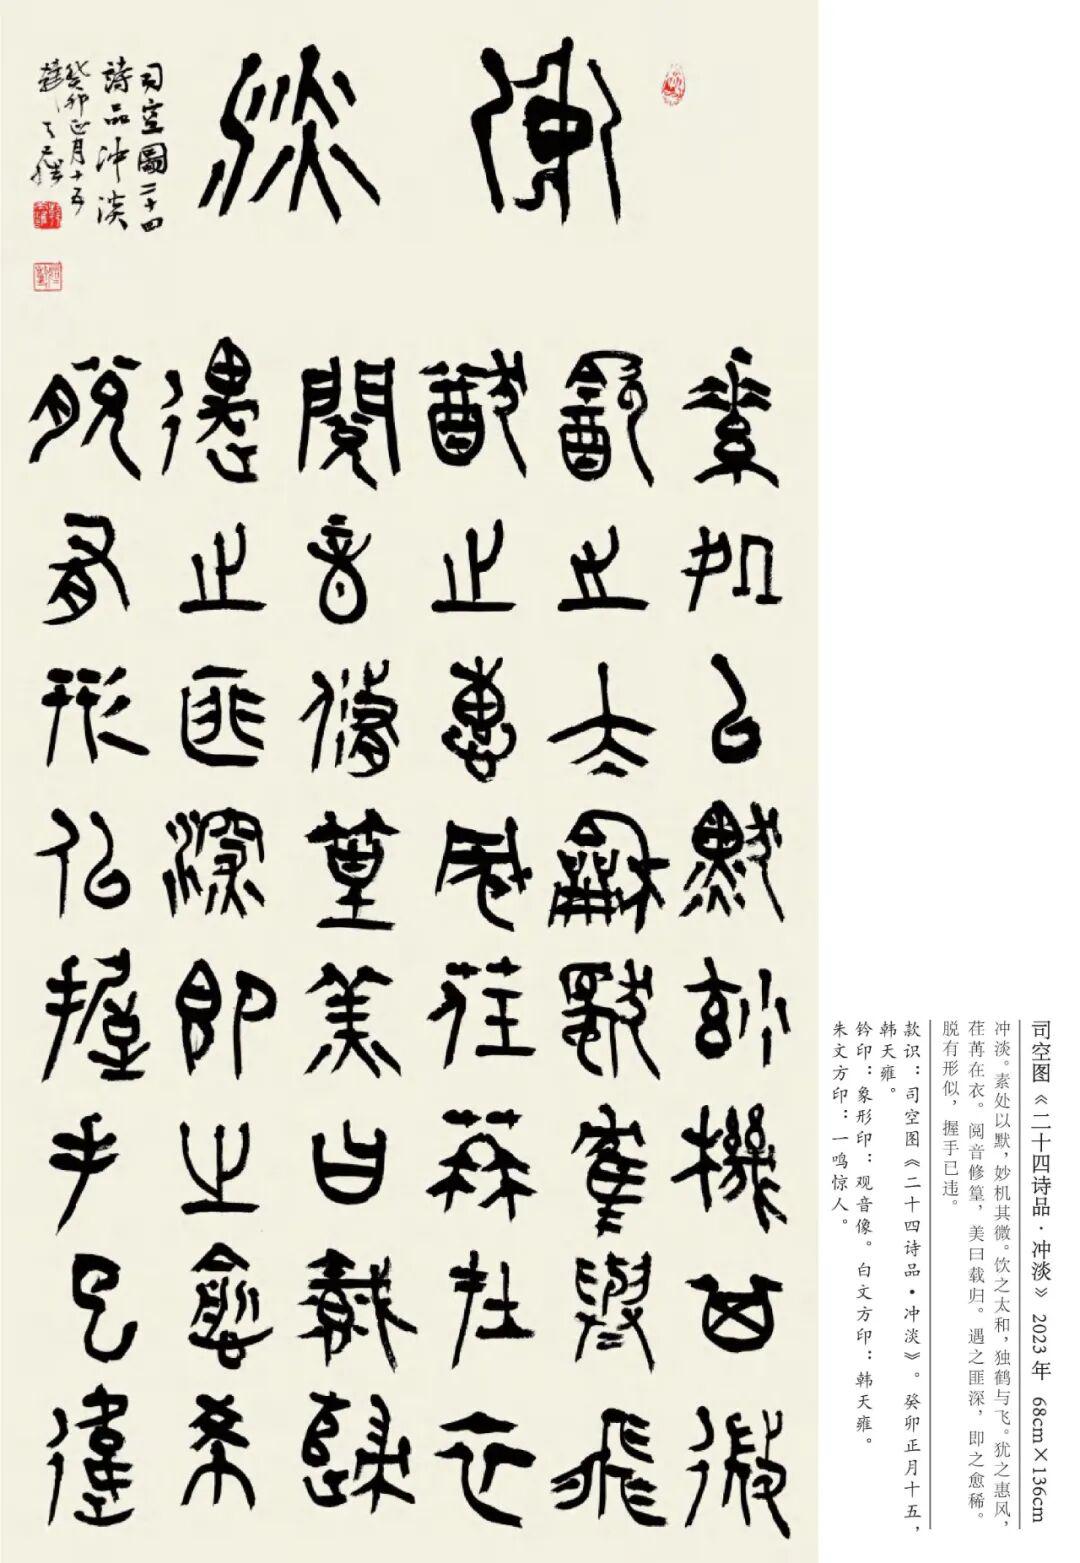 冲淡
素处以默妙机其微
饮之太和独鹤与飞
犹之惠风荏苒在衣
阅音修篁美曰载归
遇之匪深即之愈希
脱有形似握手已违
司空圖二十四
詩品冲淡
癸卯正月十五
韩天雍
司空图《二十四诗品·冲淡》 2023 年 68cm×136cm
冲淡。素处以默，妙机其微。饮之太和，独鹤与飞。犹之惠风，
荏苒在衣。阅音修篁，美曰载归。遇之匪深，即之愈稀。
脱有形似，握手已违。
款识：司空图《二十四诗品·冲淡》。癸卯正月十五，
韩天雍。
钤印：象形印：观音像。白文方印：韩天雍。
朱文方印：一鸣惊人。